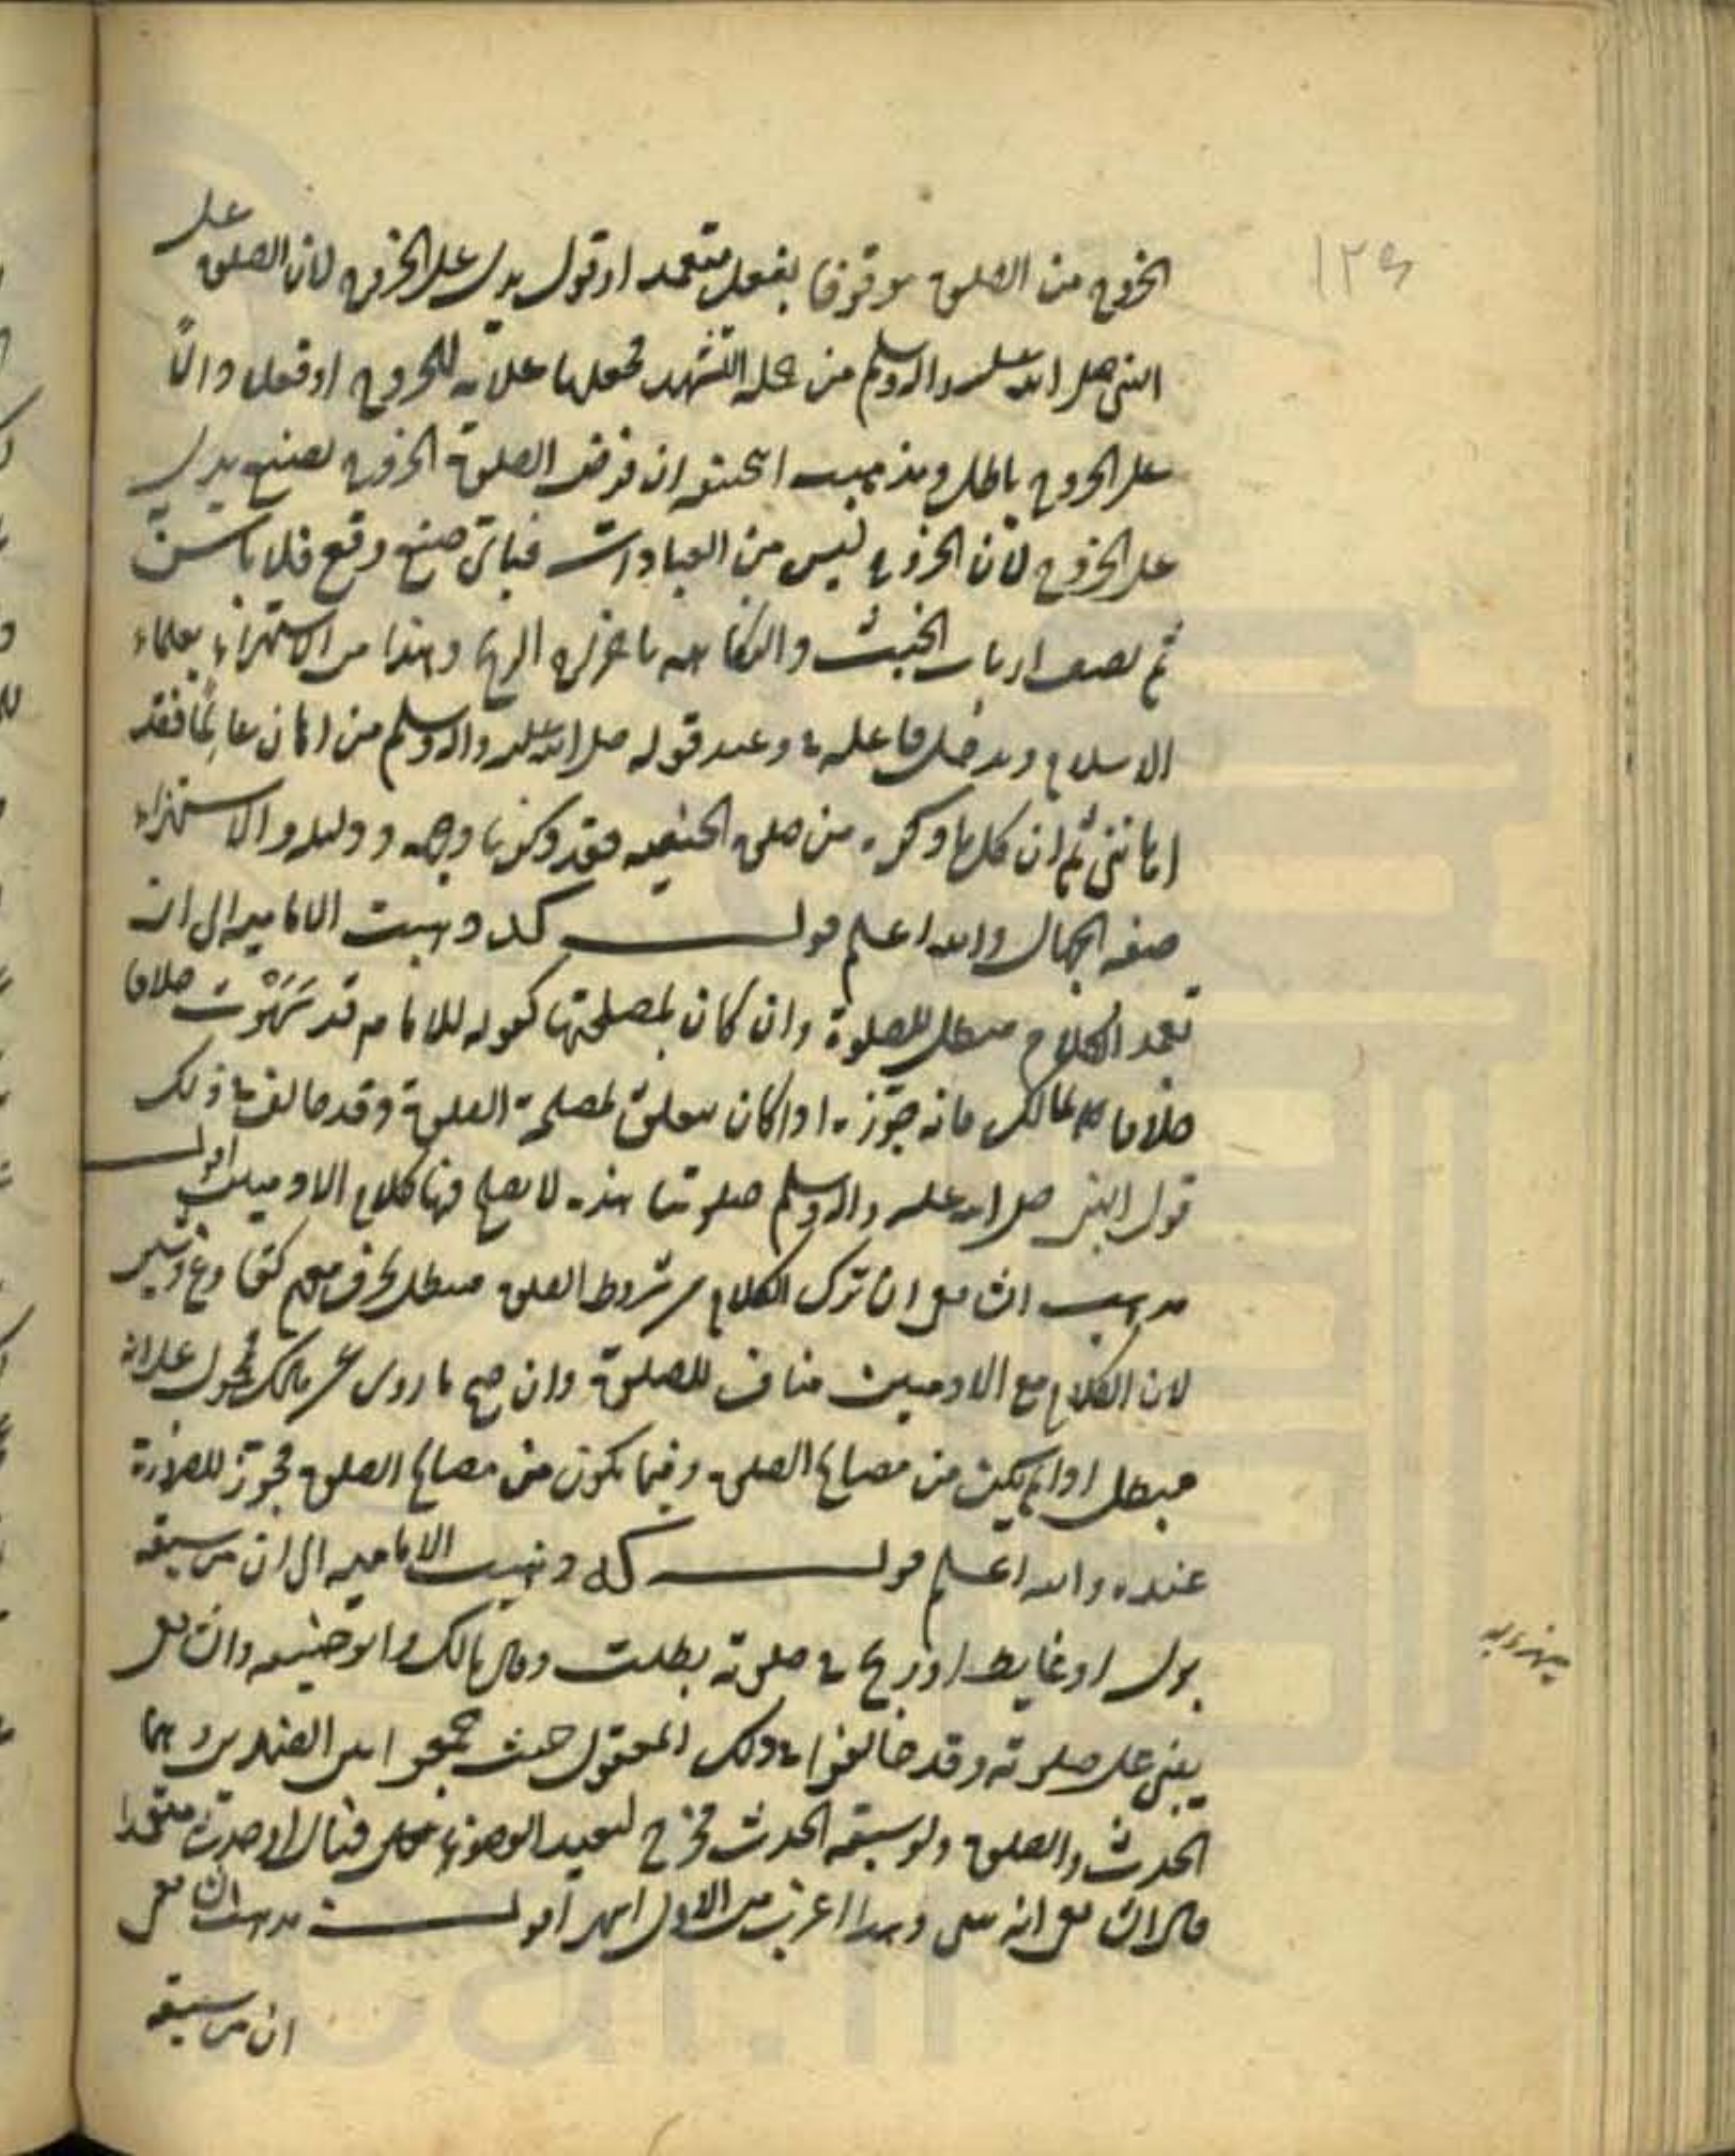 ١٢٩
الخروج من الصلوة موقوفا بفعل متعمد او قول يدل على الخروج لان الصلوة على
النبي صلى الله عليه واله وسلم من جملة التشهد فجعلها علامة للخروج او فعل دال
على الخروج باطل ومذهب ابي حنيفة ان فرض الصلوة الخروج بصنع يدل
على الخروج لأن الخروج ليس من العبادات فباي صنع وقع فلا بأس
ثم بعض ارباب الخبث والفكاهة باخراج الريح وهذا من الاستهزاء بعلماء
الاسلام ويدخل فاعله في وعيد قوله صلى الله عليه واله وسلم من اهان عالما فقد
اهانني ثم ان كلما ذكره من صلوة الحنفيه فقد ذكرنا وجهه ودليله والاستهزاء
صفه الجهال والله اعلم قوله كد ذهبت الاماميه الى ان
تعمد الكلام مبطل للصلوة وان كان لمصلحتها كقوله للامام قد سَهَوْتَ خلافا
خلافا لمالك فانه جوّزه اذا كان يتعلق لمصلحة الصلوة وقد خالف في ذلك
قول النبي صلى الله عليه واله وسلم صلوتنا هذه لا يصلح فيها كلام الادميين اقول
مذهب الشافعي ان ترك الكلام من شروط الصلوة فيبطل بحرف مفهم كقِ وعِ وشبهه
لان الكلام مع الادميين مناف للصلوة وان صح ما روى عن مالك فمحمول على انه
مبطل اذا لم يكن من مصالح الصلوة وفيما يكون من مصالح الصلوة فيجوز للضرورة
عنده والله اعلم قوله كد ذهبت الاماميه الى ان من سبقه
بول او غايط او ريح في صلوته بطلت وقال مالك وابو حنيفه والشافعي
يبني على صلوته وقد خالفوا في ذلك المعقول حيث جمعوا بين الضدين وهما
الحدث والصلوة ولو سبقه الحدث فخرج ليعيد الوضوء فبال او احدث متعمدا
قال الشافعي انه يبنى وهذا اغرب من الاول انتهى اقول مذهب الشافعي
ان من سبقه